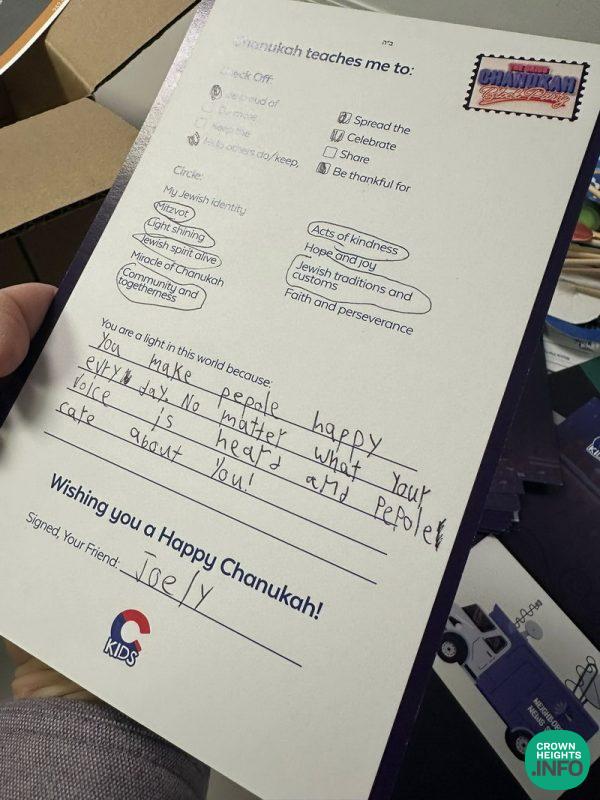 ב״ה
Chanukah teaches me to:
THE GRAND
CHANUKAH
Block Party
Check Off:
Be proud of
Do more
Keep the
Help others do/keep,
Spread the
Celebrate
Share
Be thankful for
Circle:
My Jewish identity
Mitzvot
Light shining
Jewish spirit alive
Miracle of Chanukah
Community and
togetherness
Acts of kindness
Hope and joy
Jewish traditions and
customs
Faith and perseverance
You are a light in this world because:
You make pepole happy
evry day. No matter what Your
voice is heard and Pepole
care about You!
Wishing you a Happy Chanukah!
Signed, Your Friend: Joely
C
KIDS
NEIGHBORH
NEWS
CROWN
HEIGHTS
.INFO